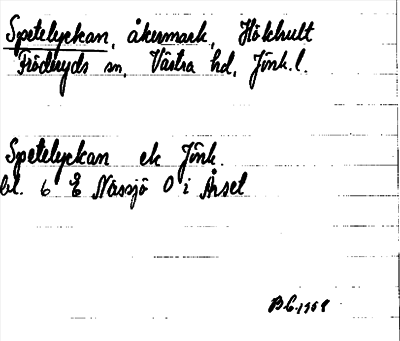 Spetelyckan, åkermark, Hökhult
Fröderyds sn, Västra hd, Jönk.l.
Spetelyckan ek Jönk.
bl. 6 E Nässjö O i Årset
B.C. 1968